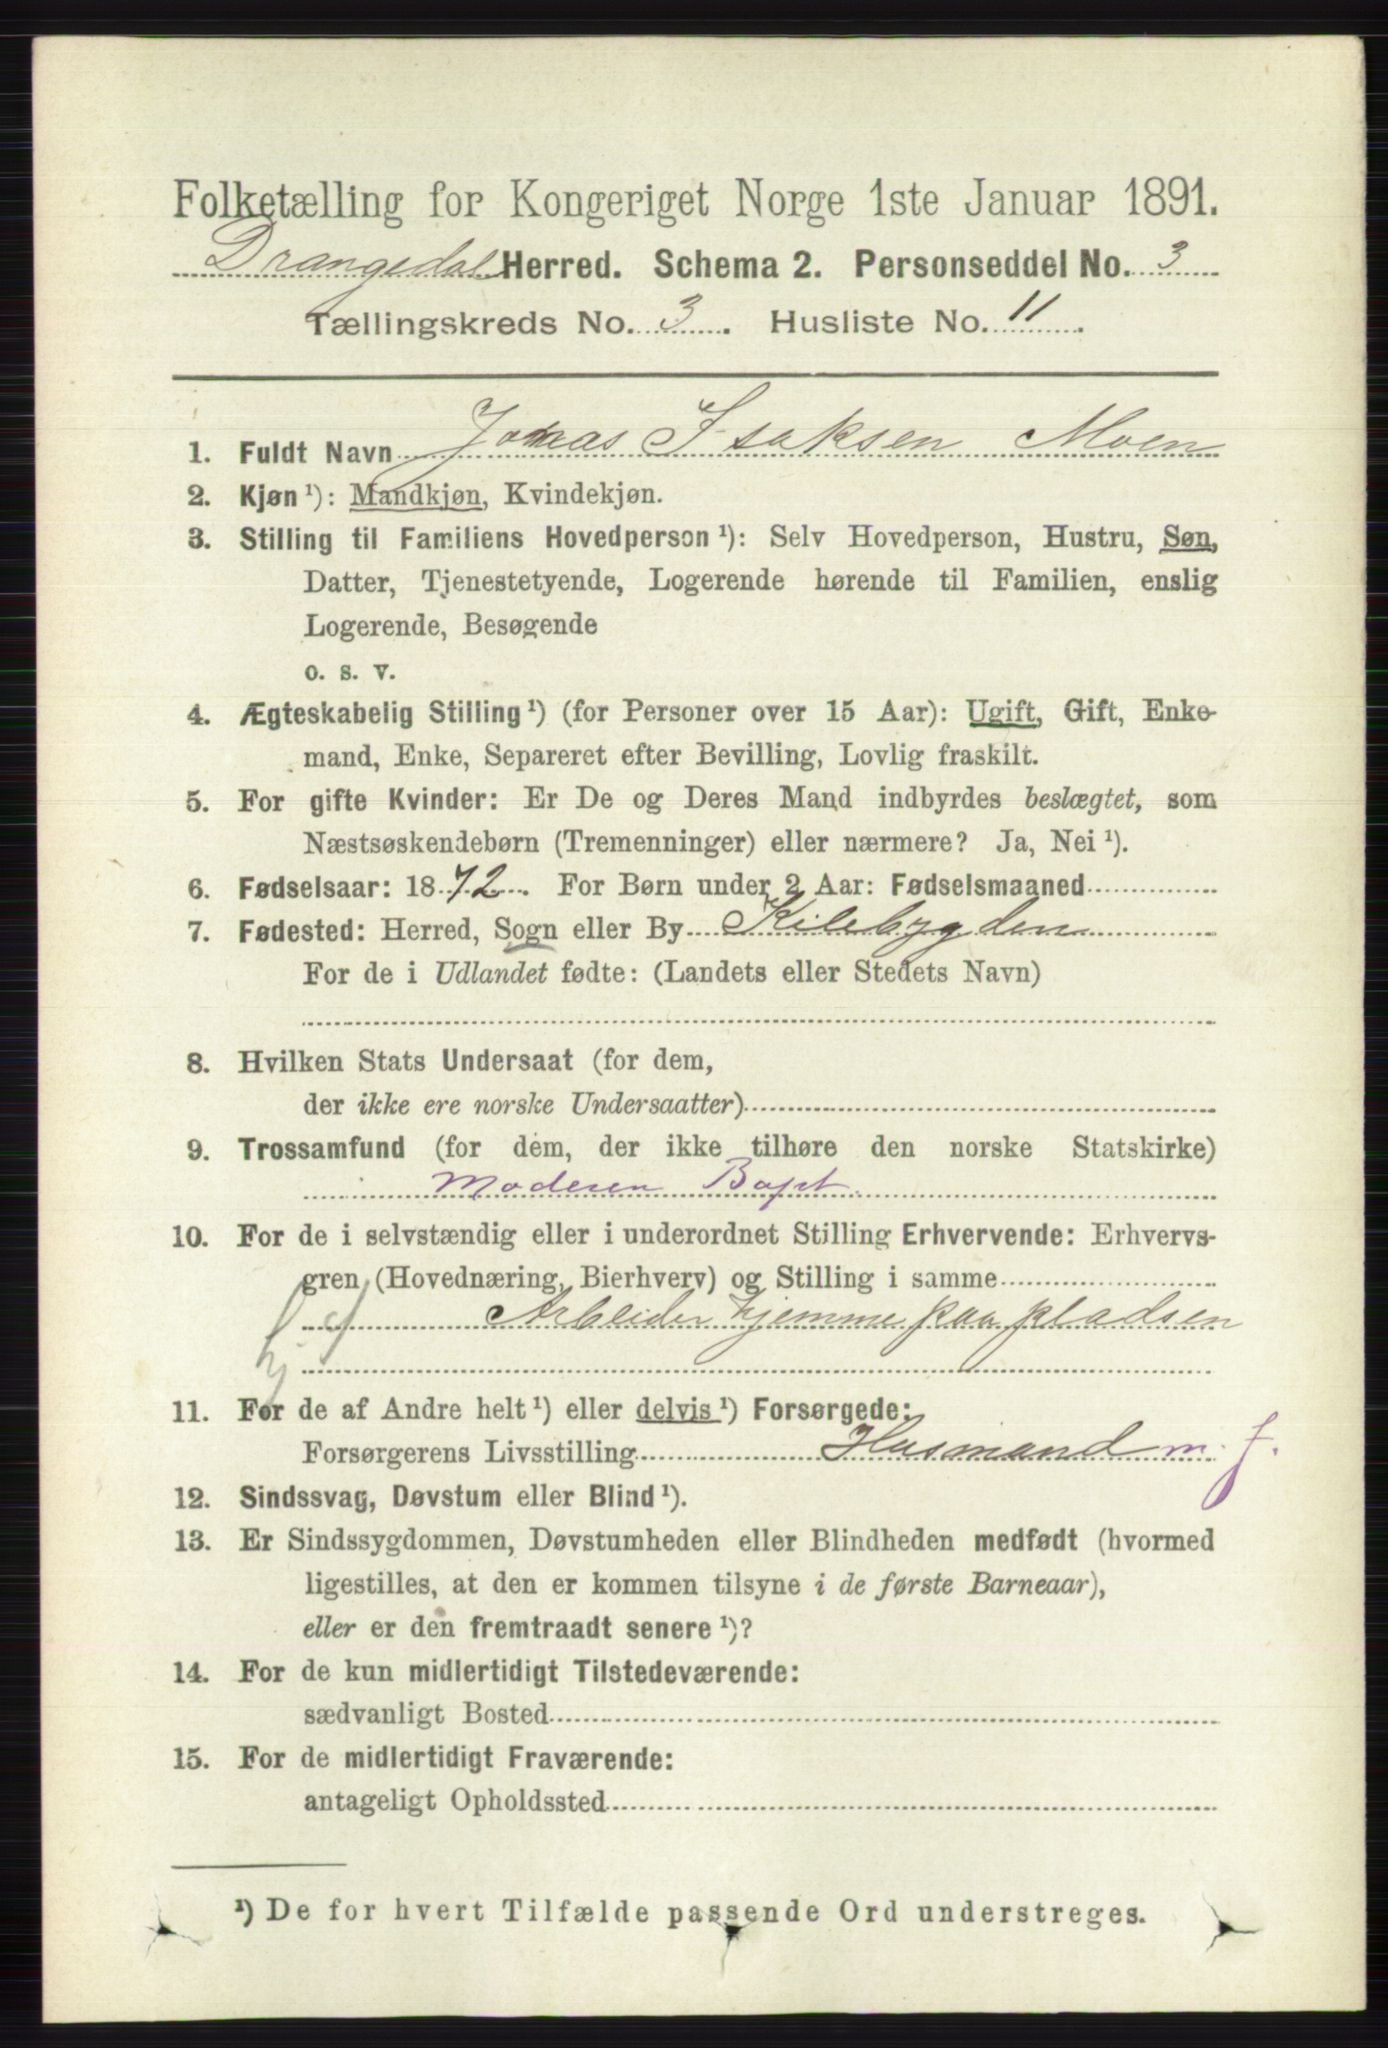 Folketælling for Kongeriget Norge 1ste Januar 1891.
Drangedal Herred. Schema 2. Personseddel No. 3
Tællingskreds No. 3. Husliste No. 11.
1. Fuldt Navn Jonas Isaksen Moen
2. Kjøn ¹): Mandkjøn, Kvindekjøn.
3. Stilling til Familiens Hovedperson ¹): Selv Hovedperson, Hustru, Søn,
Datter, Tjenestetyende, Logerende hørende til Familien, enslig
Logerende, Besøgende
o. s. v.
4. Ægteskabelig Stilling ¹) (for Personer over 15 Aar): Ugift, Gift, Enke-
mand, Enke, Separeret efter Bevilling, Lovlig fraskilt.
5. For gifte Kvinder: Er De og Deres Mand indbyrdes beslægtet, som
Næstsøskendebørn (Tremenninger) eller nærmere? Ja, Nei ¹).
6. Fødselsaar: 1872. For Børn under 2 Aar: Fødselsmaaned
7. Fødested: Herred, Sogn eller By Kilebygden
For de i Udlandet fødte: (Landets eller Stedets Navn)
8. Hvilken Stats Undersaat (for dem,
der ikke ere norske Undersaatter)
9. Trossamfund (for dem, der ikke tilhøre den norske Statskirke)
Moderen Bapt.
10. For de i selvstændig eller i underordnet Stilling Erhvervende: Erhvervs-
gren (Hovednæring, Bierhverv) og Stilling i samme
Arbeider hjemme paa pladsen
11. For de af Andre helt ¹) eller delvis ¹) Forsørgede:
Forsørgerens Livsstilling Husmand m. j.
12. Sindssvag, Døvstum eller Blind ¹).
13. Er Sindssygdommen, Døvstumheden eller Blindheden medfødt (hvormed
ligestilles, at den er kommen tilsyne i de første Barneaar),
eller er den fremtraadt senere ¹)?
14. For de kun midlertidigt Tilstedeværende:
sædvanligt Bosted
15. For de midlertidigt Fraværende:
antageligt Opholdssted
¹) De for hvert Tilfælde passende Ord understreges.